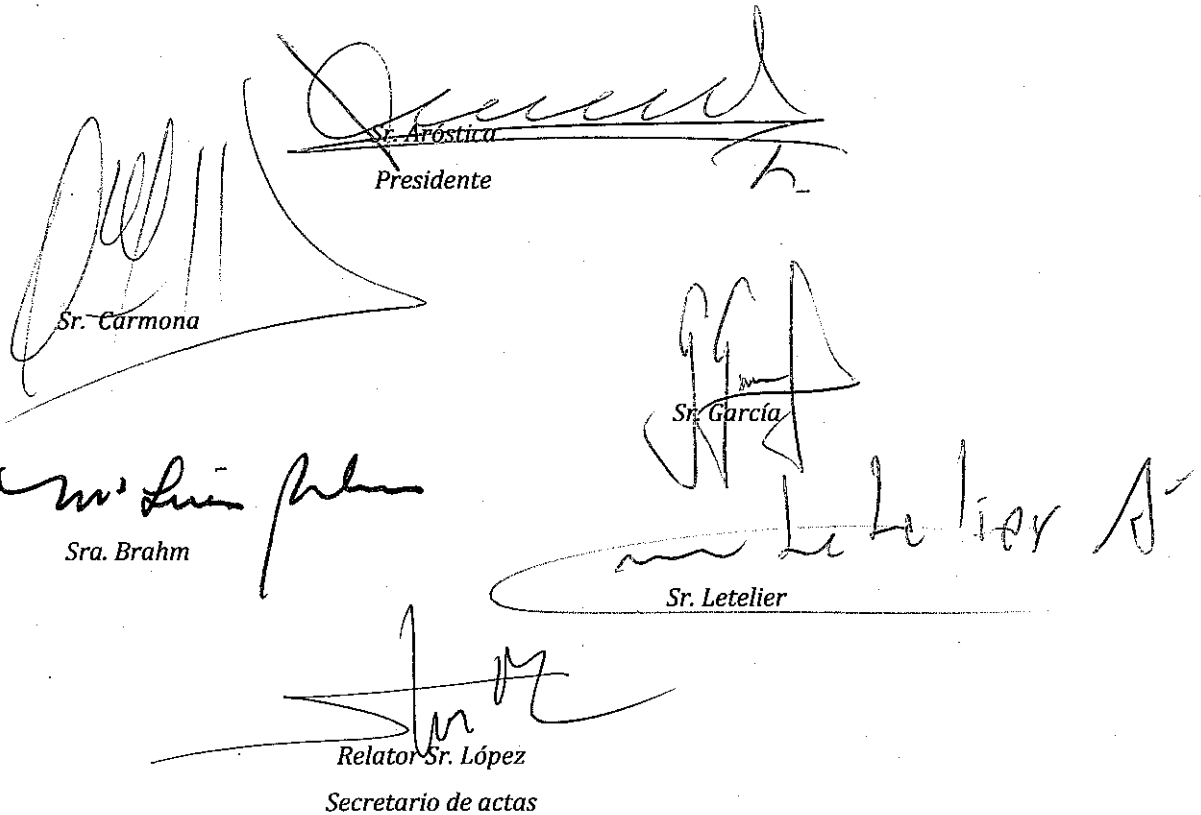 Sr. Aróstica
Presidente
Sr. Carmona
Sr. García
Mª Luisa Brahm
Sra. Brahm
Letelier A
Sr. Letelier
Relator Sr. López
Secretario de actas